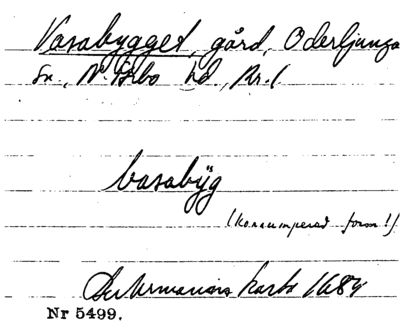 Vasabygget, gård, Oderljunga
Sn., N. Åsbo hd, Kr. l
basabÿg
(Korrumperad form!)
Buhrmanns karta 1684
Nr 5499.